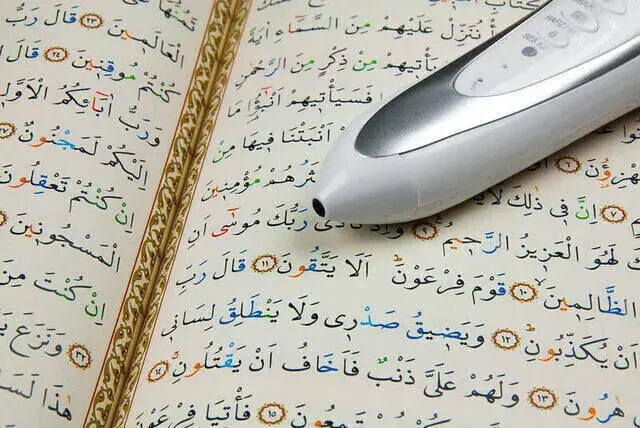 نُنَزِّلْ عَلَيْهِمْ مِنَ السَّمَٓاءِ اٰيَةً
يَأْتِيهِمْ مِنْ ذِكْرٍ مِنَ الرَّحْمٰنِ
فَسَيَأْتِيهِمْ اَنْبٰٓؤُا مَا
هْزِؤُنَ ٦ اَنْبَتْنَا فِيهَا مِنْ
٧ اِنَّ فِي ذٰلِكَ لَا ثَرُهُمْ مُؤْمِنِينَ
كَ لَهُوَ الْعَزِيزُ الرَّحِيمُ ٩ وَاِذْ نَادٰى رَبُّكَ مُوسٰٓى اَنِ
الظَّالِمِينَ ١٠ قَوْمَ فِرْعَوْنَ اَلَا يَتَّقُونَ ١١ قَالَ رَبِّ
اَنْ يُكَذِّبُونِ ١٢ وَيَضِيقُ صَدْرِي وَلَا يَنْطَلِقُ لِسَانِي
هٰرُونَ ١٣ وَلَهُمْ عَلَيَّ ذَنْبٌ فَاَخَافُ اَنْ يَقْتُلُونِ ١٤
مَعَكُمْ مُسْتَمِعُونَ ١٥ فَأْتِيَا فِرْعَوْنَ
٢٣ قَالَ رَبُّ
الْعَالَمِينَ
كُنْتُمْ مُوقِنِينَ ٢٤ قَالَ
وَرَبُّ اٰبَٓائِكُمُ الْاَوَّلِ
اِلَيْكُمْ لَمَجْنُونٌ ٢٧
اِنْ كُنْتُمْ تَعْقِلُونَ
الْمَسْجُونِينَ
اِنْ كُنْتَ مِنَ
وَنَزَعَ ٣٢
هٰذَا لَسَا